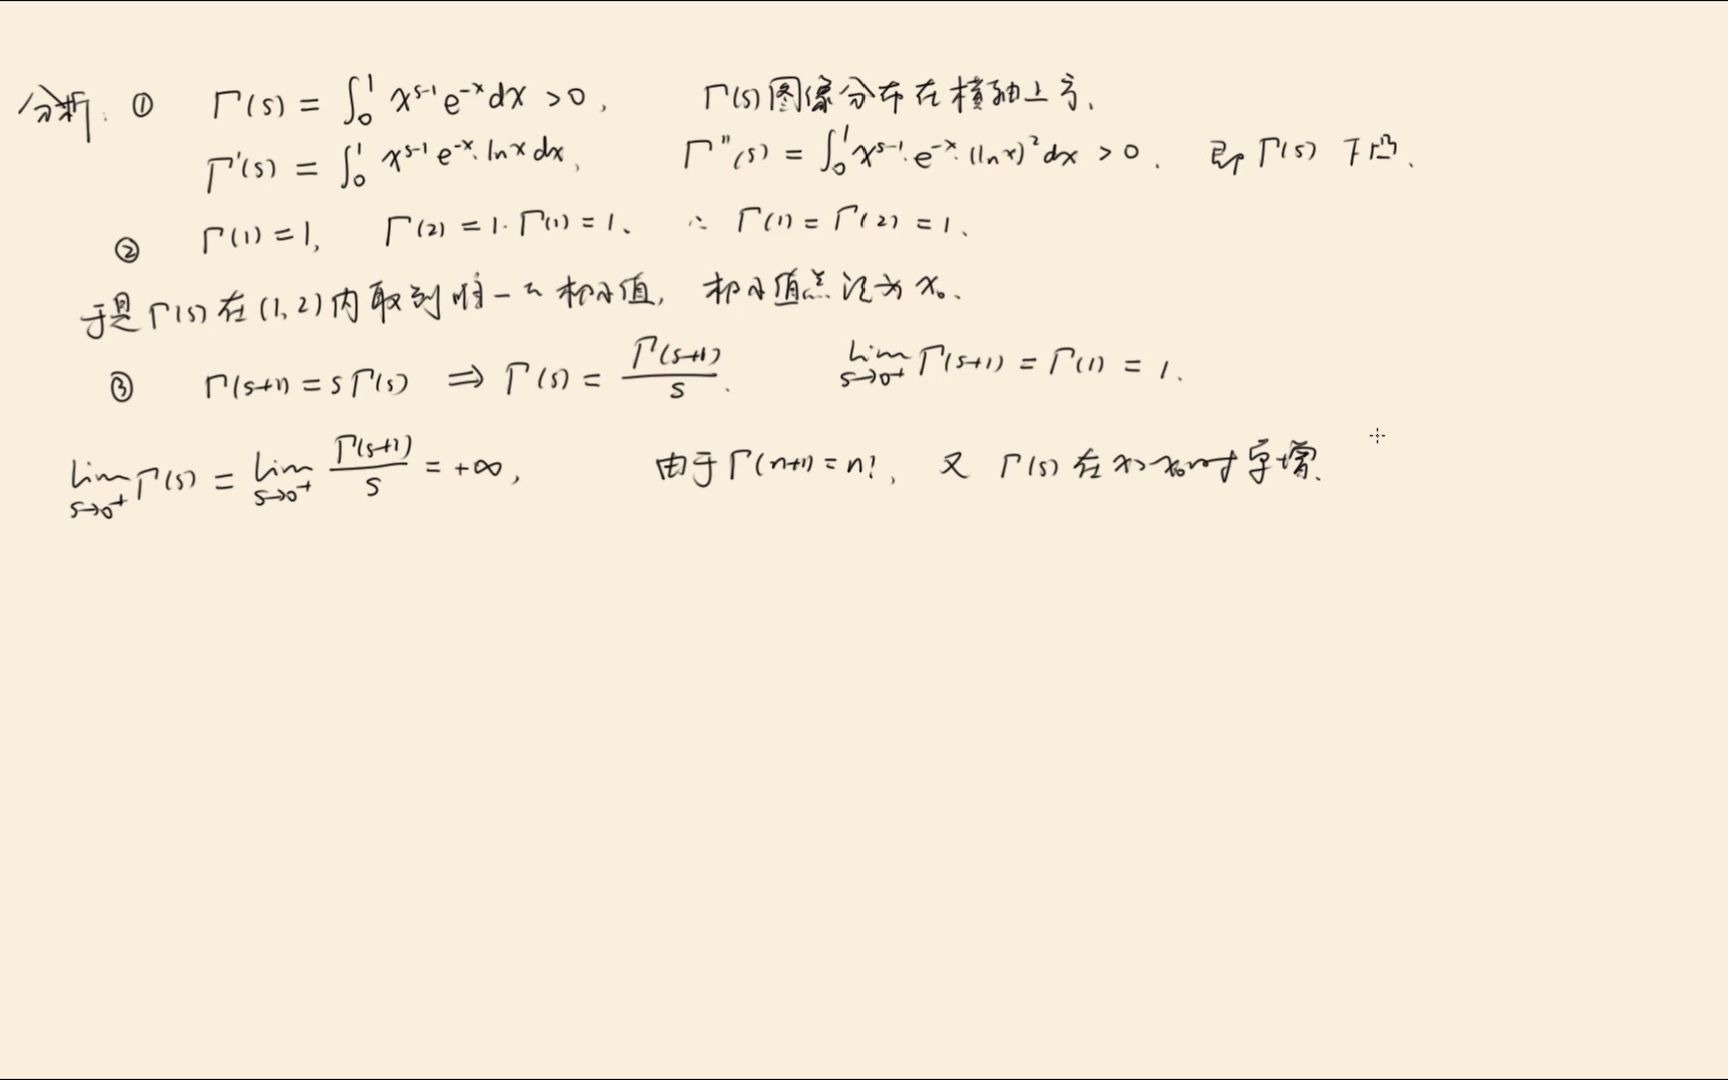 分析: ① Γ(s) = ∫₀¹ x^{s-1} e^{-x} dx > 0, Γ(s)图像分布在横轴上方.
Γ'(s) = ∫₀¹ x^{s-1} e^{-x}·lnx dx, Γ''(s) = ∫₀¹ x^{s-1}·e^{-x}·(lnx)² dx > 0. 即Γ(s)下凸.
② Γ(1) = 1, Γ(2) = 1·Γ(1) = 1. ∴ Γ(1) = Γ(2) = 1.
于是Γ(s)在(1,2)内取到唯一的极小值, 极小值点记为x₀.
③ Γ(s+1) = sΓ(s) ⇒ Γ(s) = Γ(s+1)/s. lim_{s→0⁺} Γ(s+1) = Γ(1) = 1.
lim_{s→0⁺} Γ(s) = lim_{s→0⁺} Γ(s+1)/s = +∞, 由于Γ(n+1) = n!, 又Γ(s)在x>x₀时单增.